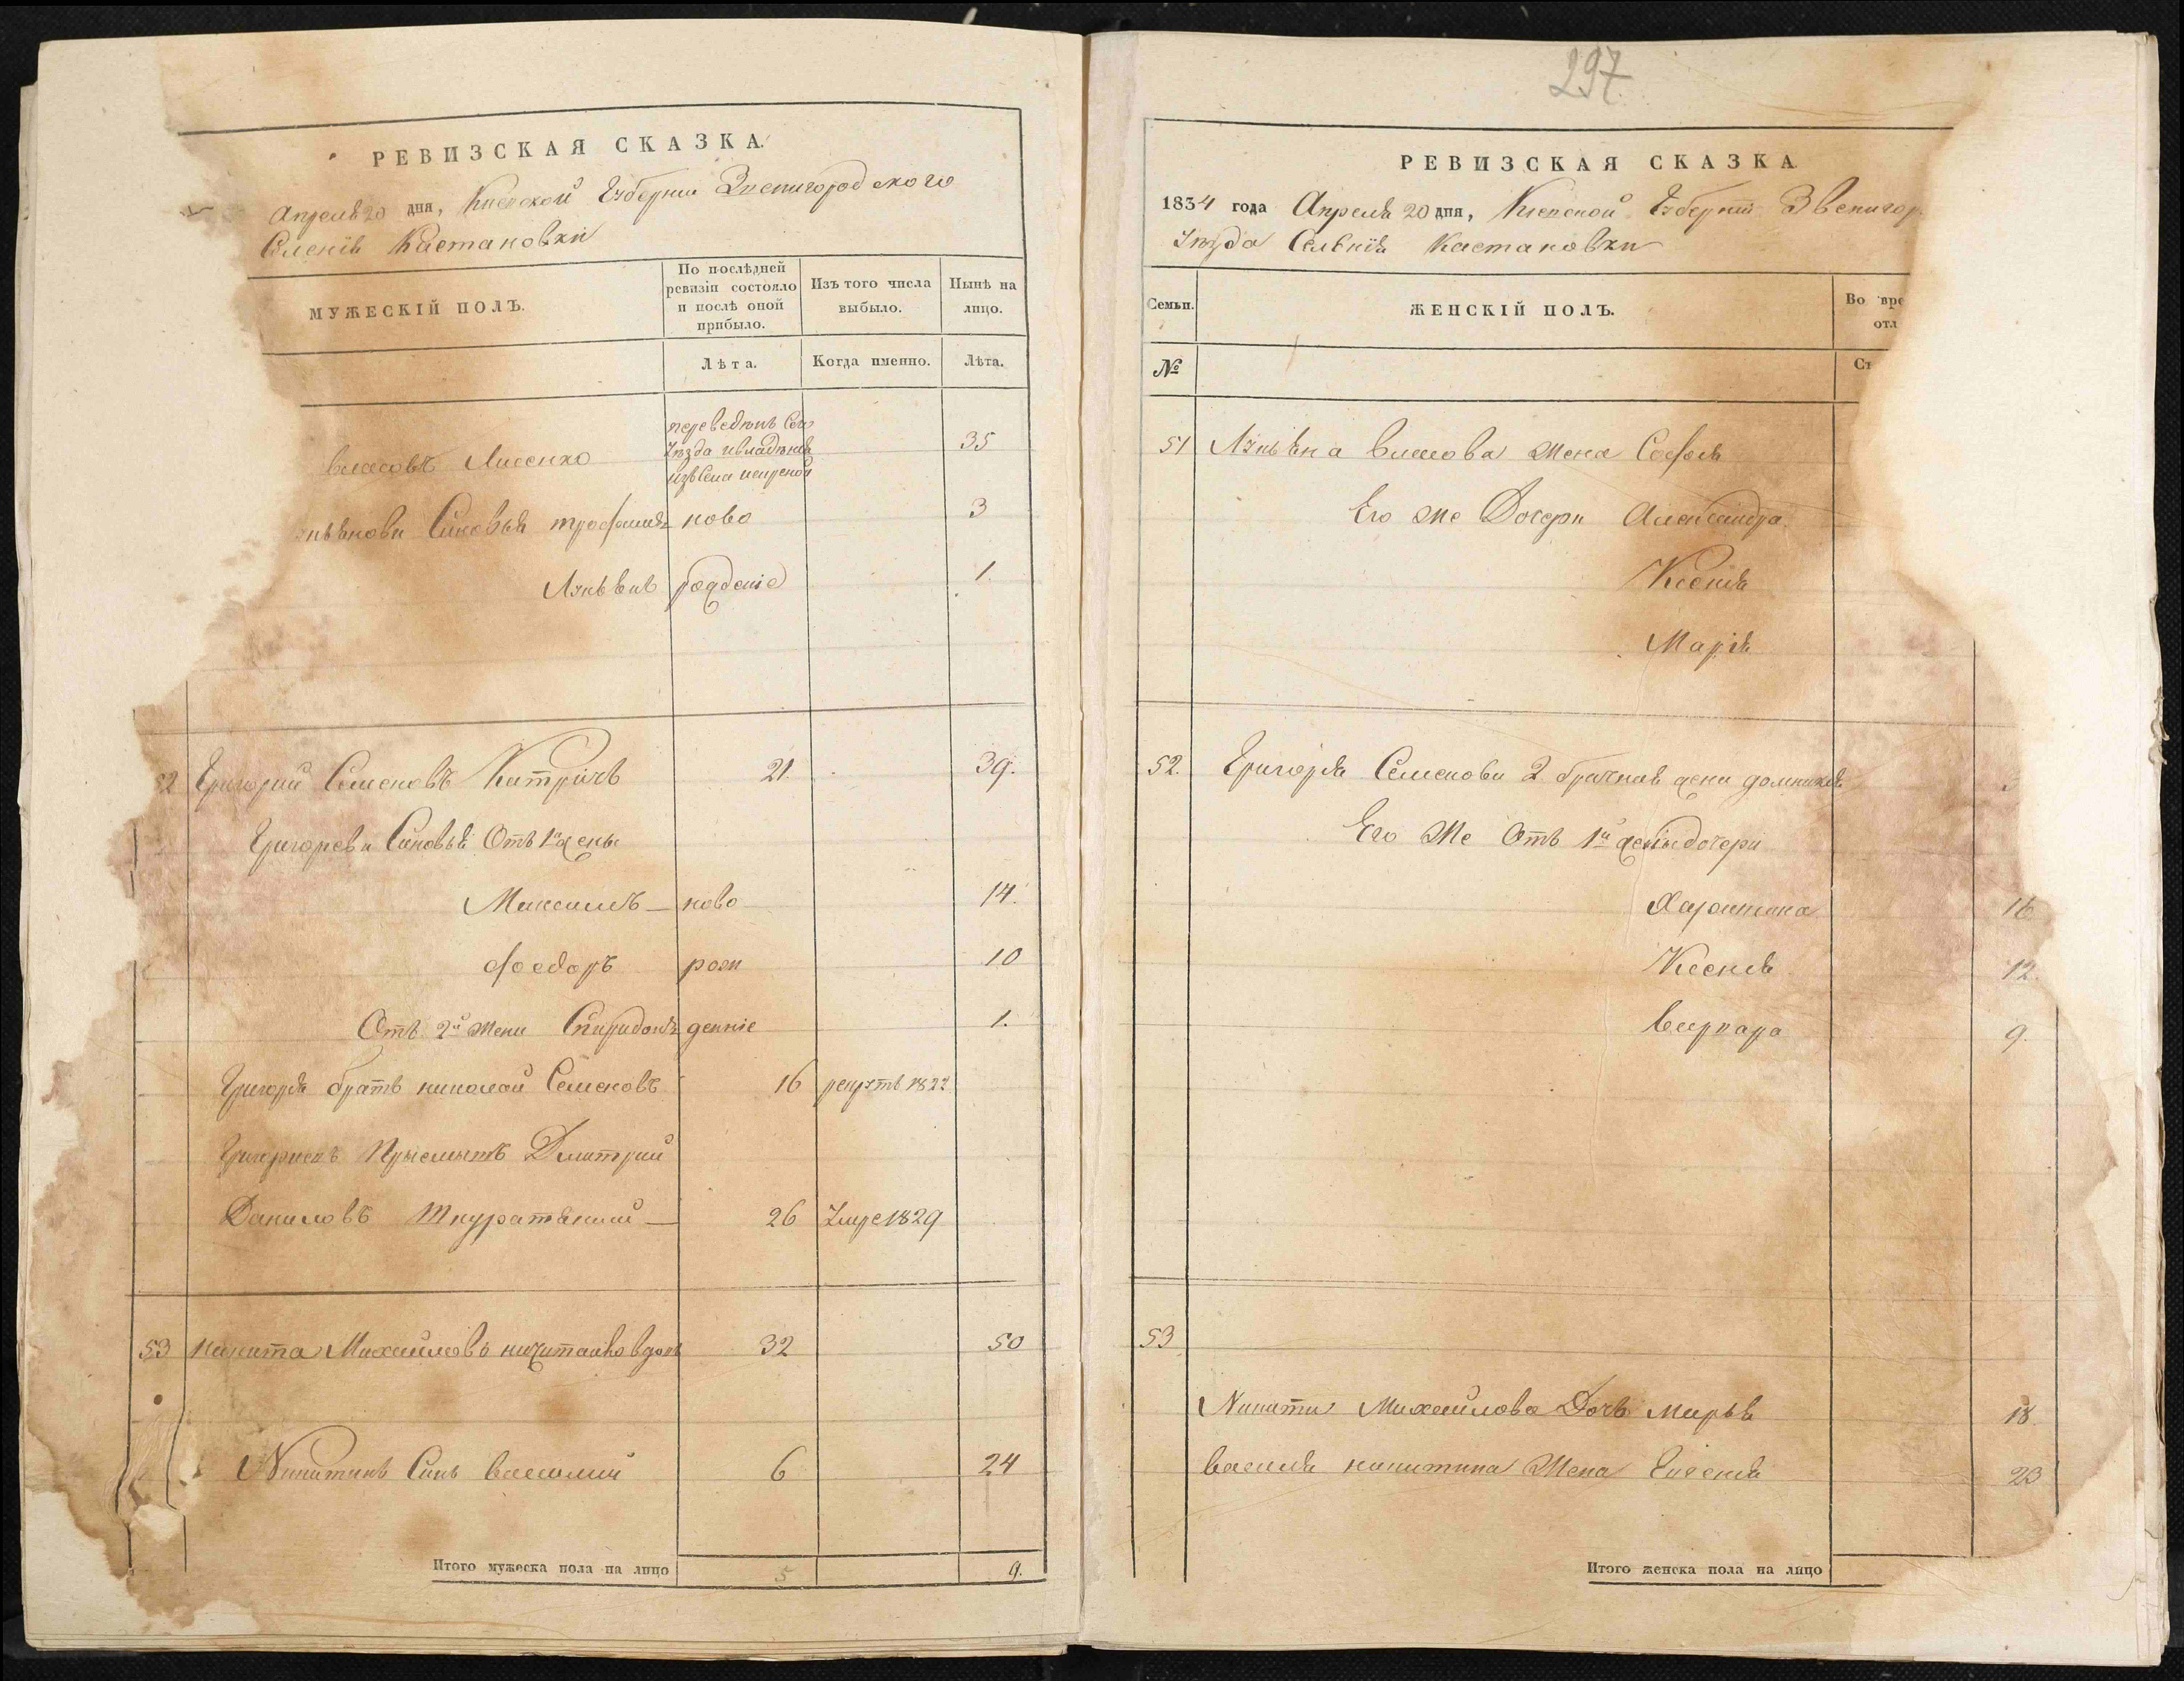 РЕВИЗСКАЯ СКАЗКА.
Апреля 20 дня, Киевской Губернии Звенигородского
Селенія Кастановки
МУЖЕСКІЙ ПОЛЪ.
По послѣдней ревизіи состояло и послѣ оной прибыло.
Изъ того числа выбыло.
Нынѣ на лицо.
Лѣта.
Когда именно.
Лѣта.
власовъ Лисенко переведенъ Сего Уезда 35
Синовья трофимъ ново 3
рождение 1.
52 Григорий Семеновъ 21. 39.
Григореви Синовья Отъ 1й жены
Максимъ ново 14.
федоръ рож 10
Отъ 2й жени Спиридонъ дение 1.
Григоря братъ николай Семеновъ 16 рекрутъ 1822
Дмитрий
Даниловъ 26 Умре 1829
53 Никита Михайловъ 32 50
Никитинъ Синъ василий 6 24
Итого мужеска пола на лицо 5 9.
297
РЕВИЗСКАЯ СКАЗКА
1834 года Апреля 20 дня, Киевской Губернии Звенигор
Уезда Селения Кастановки
Семьи.
ЖЕНСКІЙ ПОЛЪ.
Во вре
отл
№
51 власова жена Софья
Его же Дочери Александра
Ксения
Мария
52. Григоря Семенова 2 брачная жена домникия
Его же Отъ 1й жены дочери
Харитина 16
Ксения 12.
варвара 9.
53
Никити Михайлова Дочь марья 18.
василя никитина жена Евгения 23
Итого женска пола на лицо